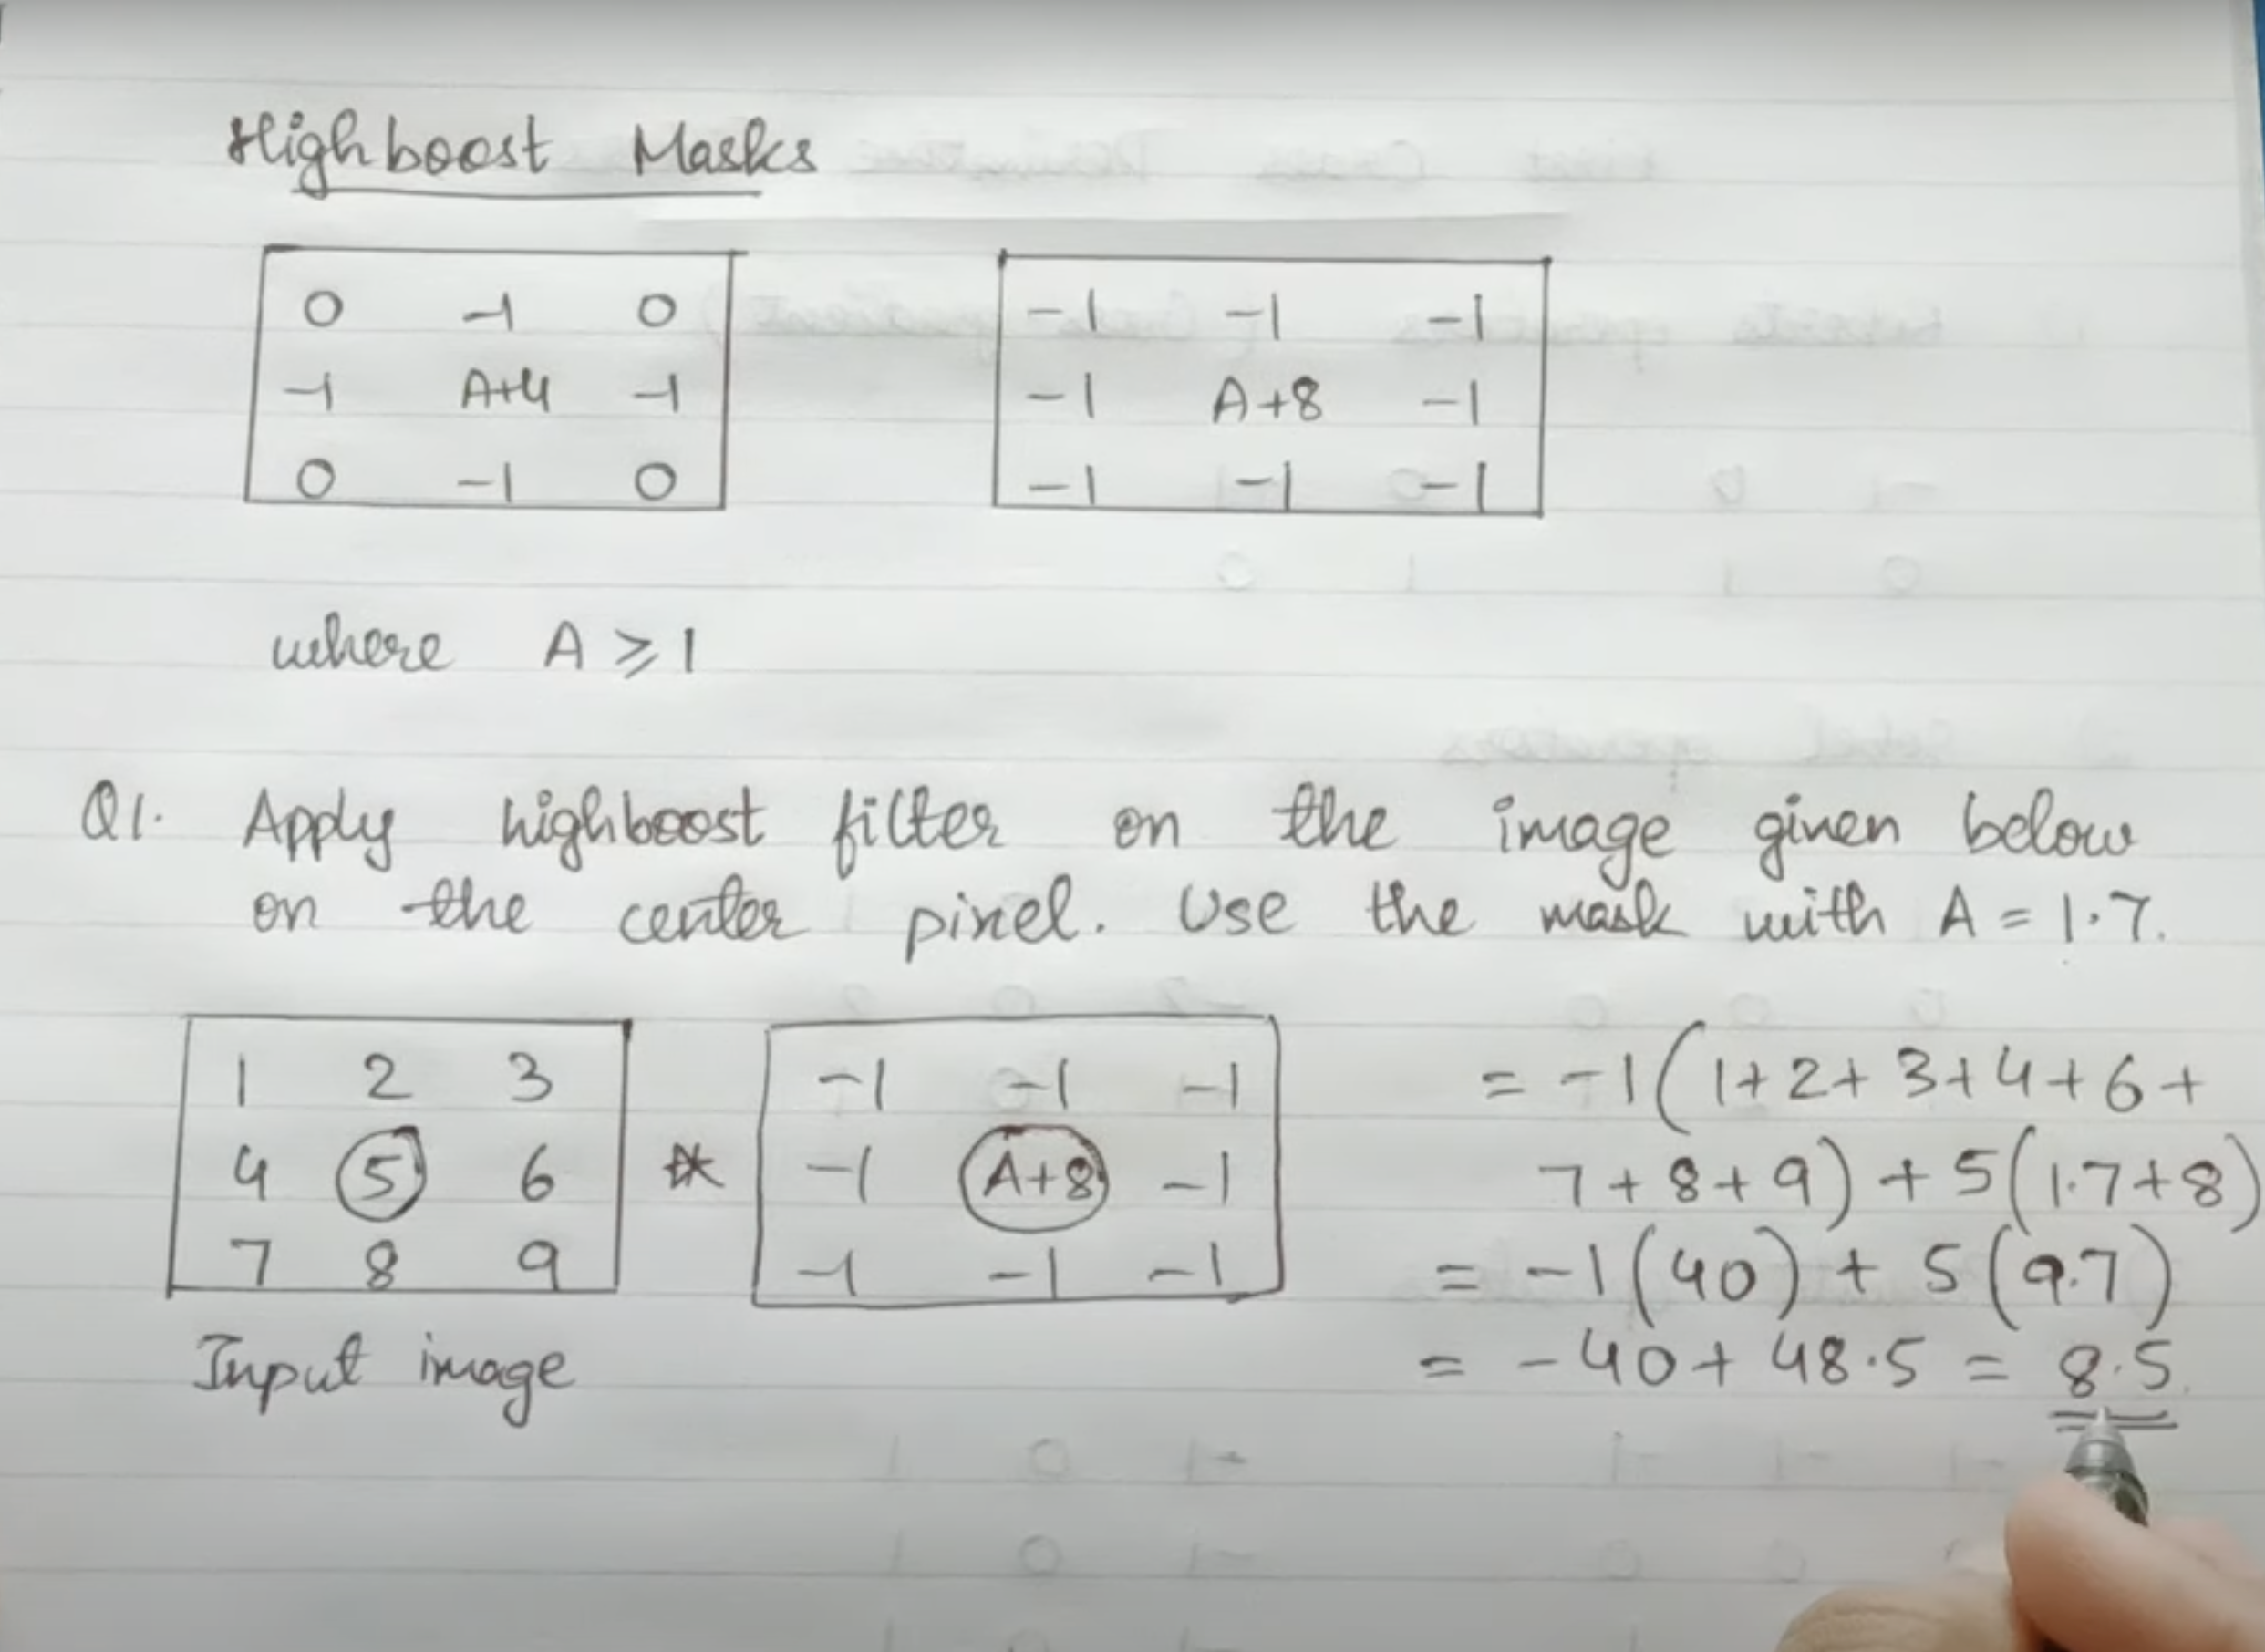 Highboost Masks
0 -1 0
-1 A+4 -1
0 -1 0
-1 -1 -1
-1 A+8 -1
-1 -1 -1
where A ⩾ 1
Q1. Apply highboost filter on the image given below
on the center pixel. Use the mask with A = 1.7.
1 2 3
4 5 6
7 8 9
*
-1 -1 -1
-1 A+8 -1
-1 -1 -1
Input image
= -1(1+2+3+4+6+
7+8+9)+5(1.7+8)
= -1(40)+5(9.7)
= -40+48.5 = 8.5